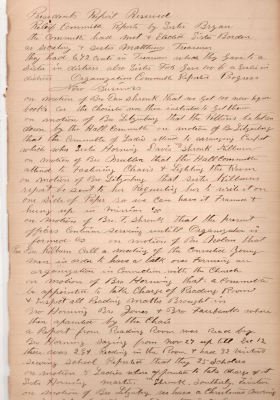 Presidents Report Received
Visiting Committe Report by Sister Bryan
the Committe had Met & Elected Sister Borden
as Secretary & Sister Matthews Treasurer
they had 6.92 Cents in Treasurer which they gave to a
sister in distress also Sister
district Organization Committe Reports Progress
New Business
on motion of Bro Ed Shrenk that we get 100 new
books for the Choir and
on motion of Bro Litzenberg that the Videos be taken
down by the Hall Committe on motion of Bro Litzenberg
that the Committe of Ladies
which was Sisters Horning Davis Shrenk Killburn
on motion of Bro Mueller that the Hall Committe
attend to Fastening Chairs & Lighting the Room
on motion of Bro Litzenberg that sister Killburns
report be sent to her Requesting her to write it on
one side of Paper so we can have it Framed &
hung up
on motion of Bro F. Shrenk that the present
officers Continue serving untill Organization is
formed on motion of Bro
Bro Killburn Call a meeting of the Consider Young
Men in order to have a talk over Forming an
organization in Connection with the Church
on motion Bro Horning that a Committe
be appointed to take Charge of Reading Room
& Inspect all Reading Matter Brought in
Bro Horning Bro Jones & Bro Fairbanks where
then appointed by the Chair
a Report from Reading Room was Read by
Bro Horning saying from Nov 27 up till Dec 12
there was 284 Reading in the Room & had 33 Visitors
Sewing School Reported that they 25 Scholars
on motion 4 Ladies where appointed to take Charge of it
Sister Horning Martin Shrenk
on motion of Bro Litzenberg we have a Christmas